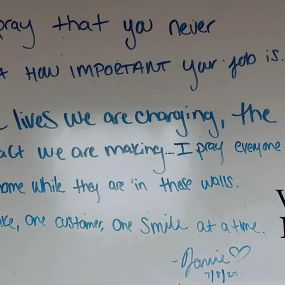 pray that you never
HOW IMPORTANT your job is.
lives we are changing, the
act we are making...I pray everyone
ome while they are in these walls.
ice, one customer, one smile at a time.
-Jamie♡
7/8/21